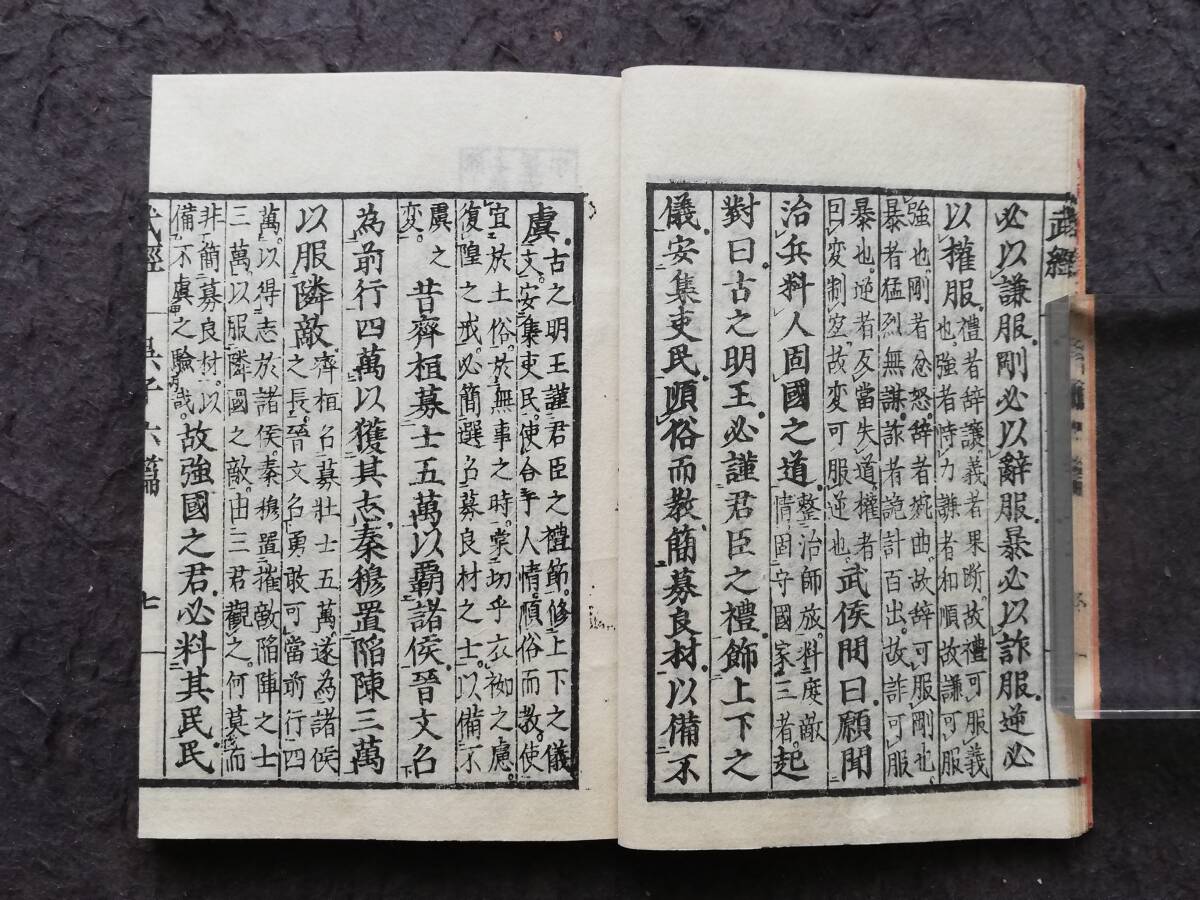 武經
必以謙服剛必以辭服暴必以詐服逆必
以權服。禮者辭讓義者果断。故禮可服義
也強者恃力謙者和順故謙可服
強也。剛者忿怒。辞者婉曲。故辞可服剛也。
暴者猛烈無謀。詐者詭計百出。故詐可服
暴也。逆者反當失道。權者
曰変制宜。故変可服逆也。武侯問曰願聞
治兵料人固國之道。整治師放。料度敵
情。固守國家三者。起
對曰古之明王必謹君臣之禮飾上下之
儀安集吏民順俗而教簡募良材以備不
虞。古之明王謹君臣之禮節。修上下之儀
文。安集吏民。使合乎人情。順俗而教。使
宜於土俗。於無事之時。常切乎衣袽之慮。
復隍之戒。必簡選召募良材之士。以備不
虞之
変。昔齊桓募士五萬以霸諸侯晉文召
為前行四萬以獲其志秦穆置陥陳三萬
以服隣敵。齊桓召募壮士五萬。遂為諸侯
之長。晉文召勇敢可當前行四
萬。以得志於諸侯。秦穆置摧敵陥陣之士
三萬。以服隣國之敵。由三君觀之。何莫而
非簡募良材。以
備不虞之驗哉。故強國之君必料其民民
武經 吳子六篇 七